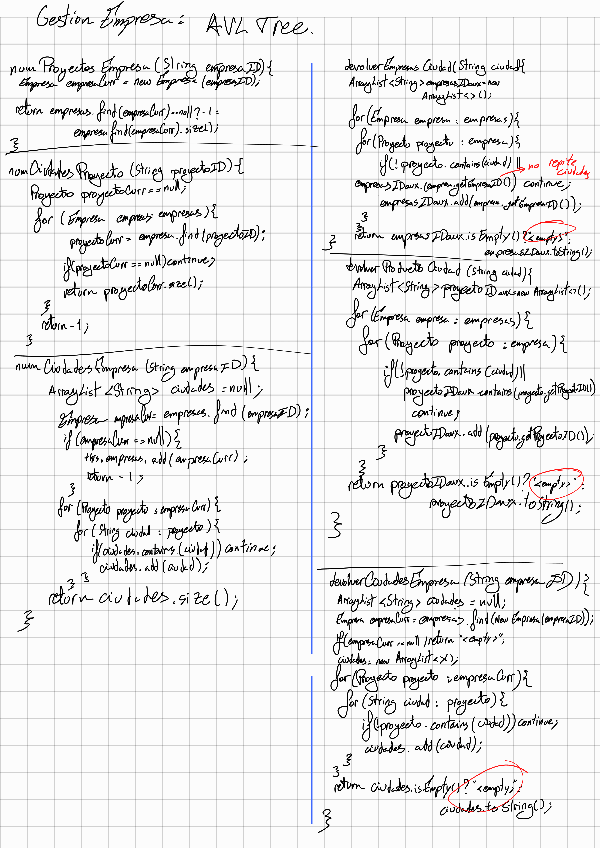 Gestion Empresa: AVL Tree.
num Proyectos Empresa (String empresaID){
Empresa empresaCurr = new Empresa (empresaID);
return empresas.find(empresaCurr)==null?-1:
empresa.find(empresaCurr).size();
num Ciudades Proyecto (String proyectoID){
Proyecto proyectoCurr == null;
for (Empresa empresa: empresas){
proyectoCurr = empresa.find(proyectoID);
if(proyectoCurr == null) continue;
return proyectoCurr.size();
}
return -1;
}
num Ciudades Empresa (String empresaID){
ArrayList <String> ciudades = null;
Empresa empresaCurr = empresas.find(empresaID);
if (empresaCurr == null){
this.empresas.add(empresaCurr);
return -1;
}
for (Proyecto proyecto : empresaCurr){
for (String ciudad : proyecto){
if(ciudades.contains(ciudad)) continue;
ciudades.add(ciudad);
}
}
return ciudades.size();
}
devolverEmpresas Ciudad(String ciudad{
ArrayList<String> empresasIDaux=new
ArrayList<>();
for (Empresa empresa : empresas){
for(Proyecto proyecto : empresa){
if(!proyecto.contains(ciudad) ||
no repite
ciudades
empresasIDaux.(empresa.getEmpresaID()) continue;
empresasIDaux.add(empresa.getEmpresaID());
}
}
return empresasIDaux.isEmpty()?"<empty>":
empresasIDaux.toString();
}
devolver Producto Ciudad (String ciudad){
ArrayList<String> proyectoIDaux=new ArrayList<>();
for (Empresa empresa : empresas){
for (Proyecto proyecto : empresa){
if(!proyecto.contains(ciudad)||
proyectoIDaux.contains(proyecto.getProyectoID())
continue;
proyectoIDaux.add(proyecto.getProyectoID());
}
}
return proyectoIDaux.isEmpty()?"<empty>":
proyectoIDaux.toString();
}
devolverCiudadesEmpresa (String empresaID)){
ArrayList <String> ciudades = null;
Empresa empresaCurr = empresas.find(New Empresa(empresaID));
if(empresaCurr==null)return "<empty>";
ciudades = new ArrayList<>();
for(Proyecto proyecto : empresaCurr){
for(String ciudad : proyecto){
if(!proyecto.contains(ciudad)) continue;
ciudades.add(ciudad);
}
}
return ciudades.isEmpty()?"<empty>":
ciudades.toString();
}